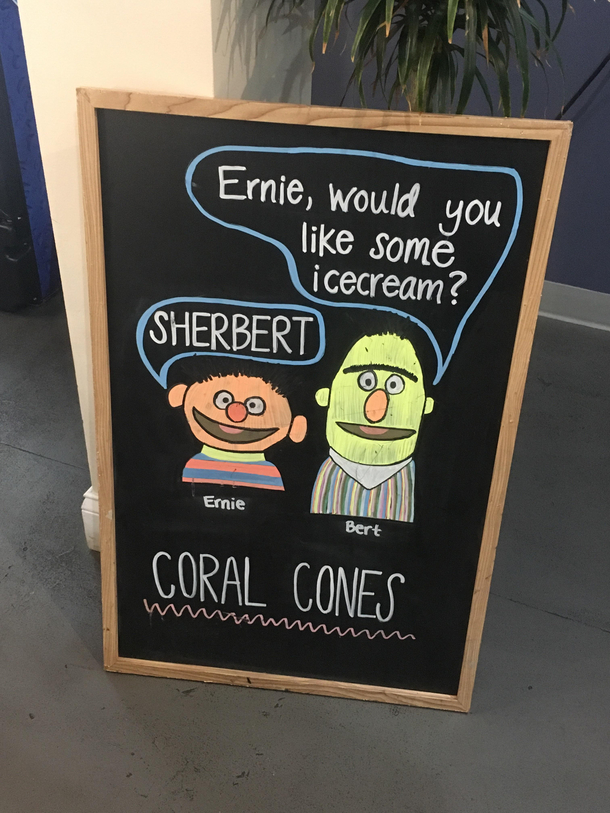 Ernie, would you
like some
icecream?
SHERBERT
Ernie
Bert
CORAL CONES